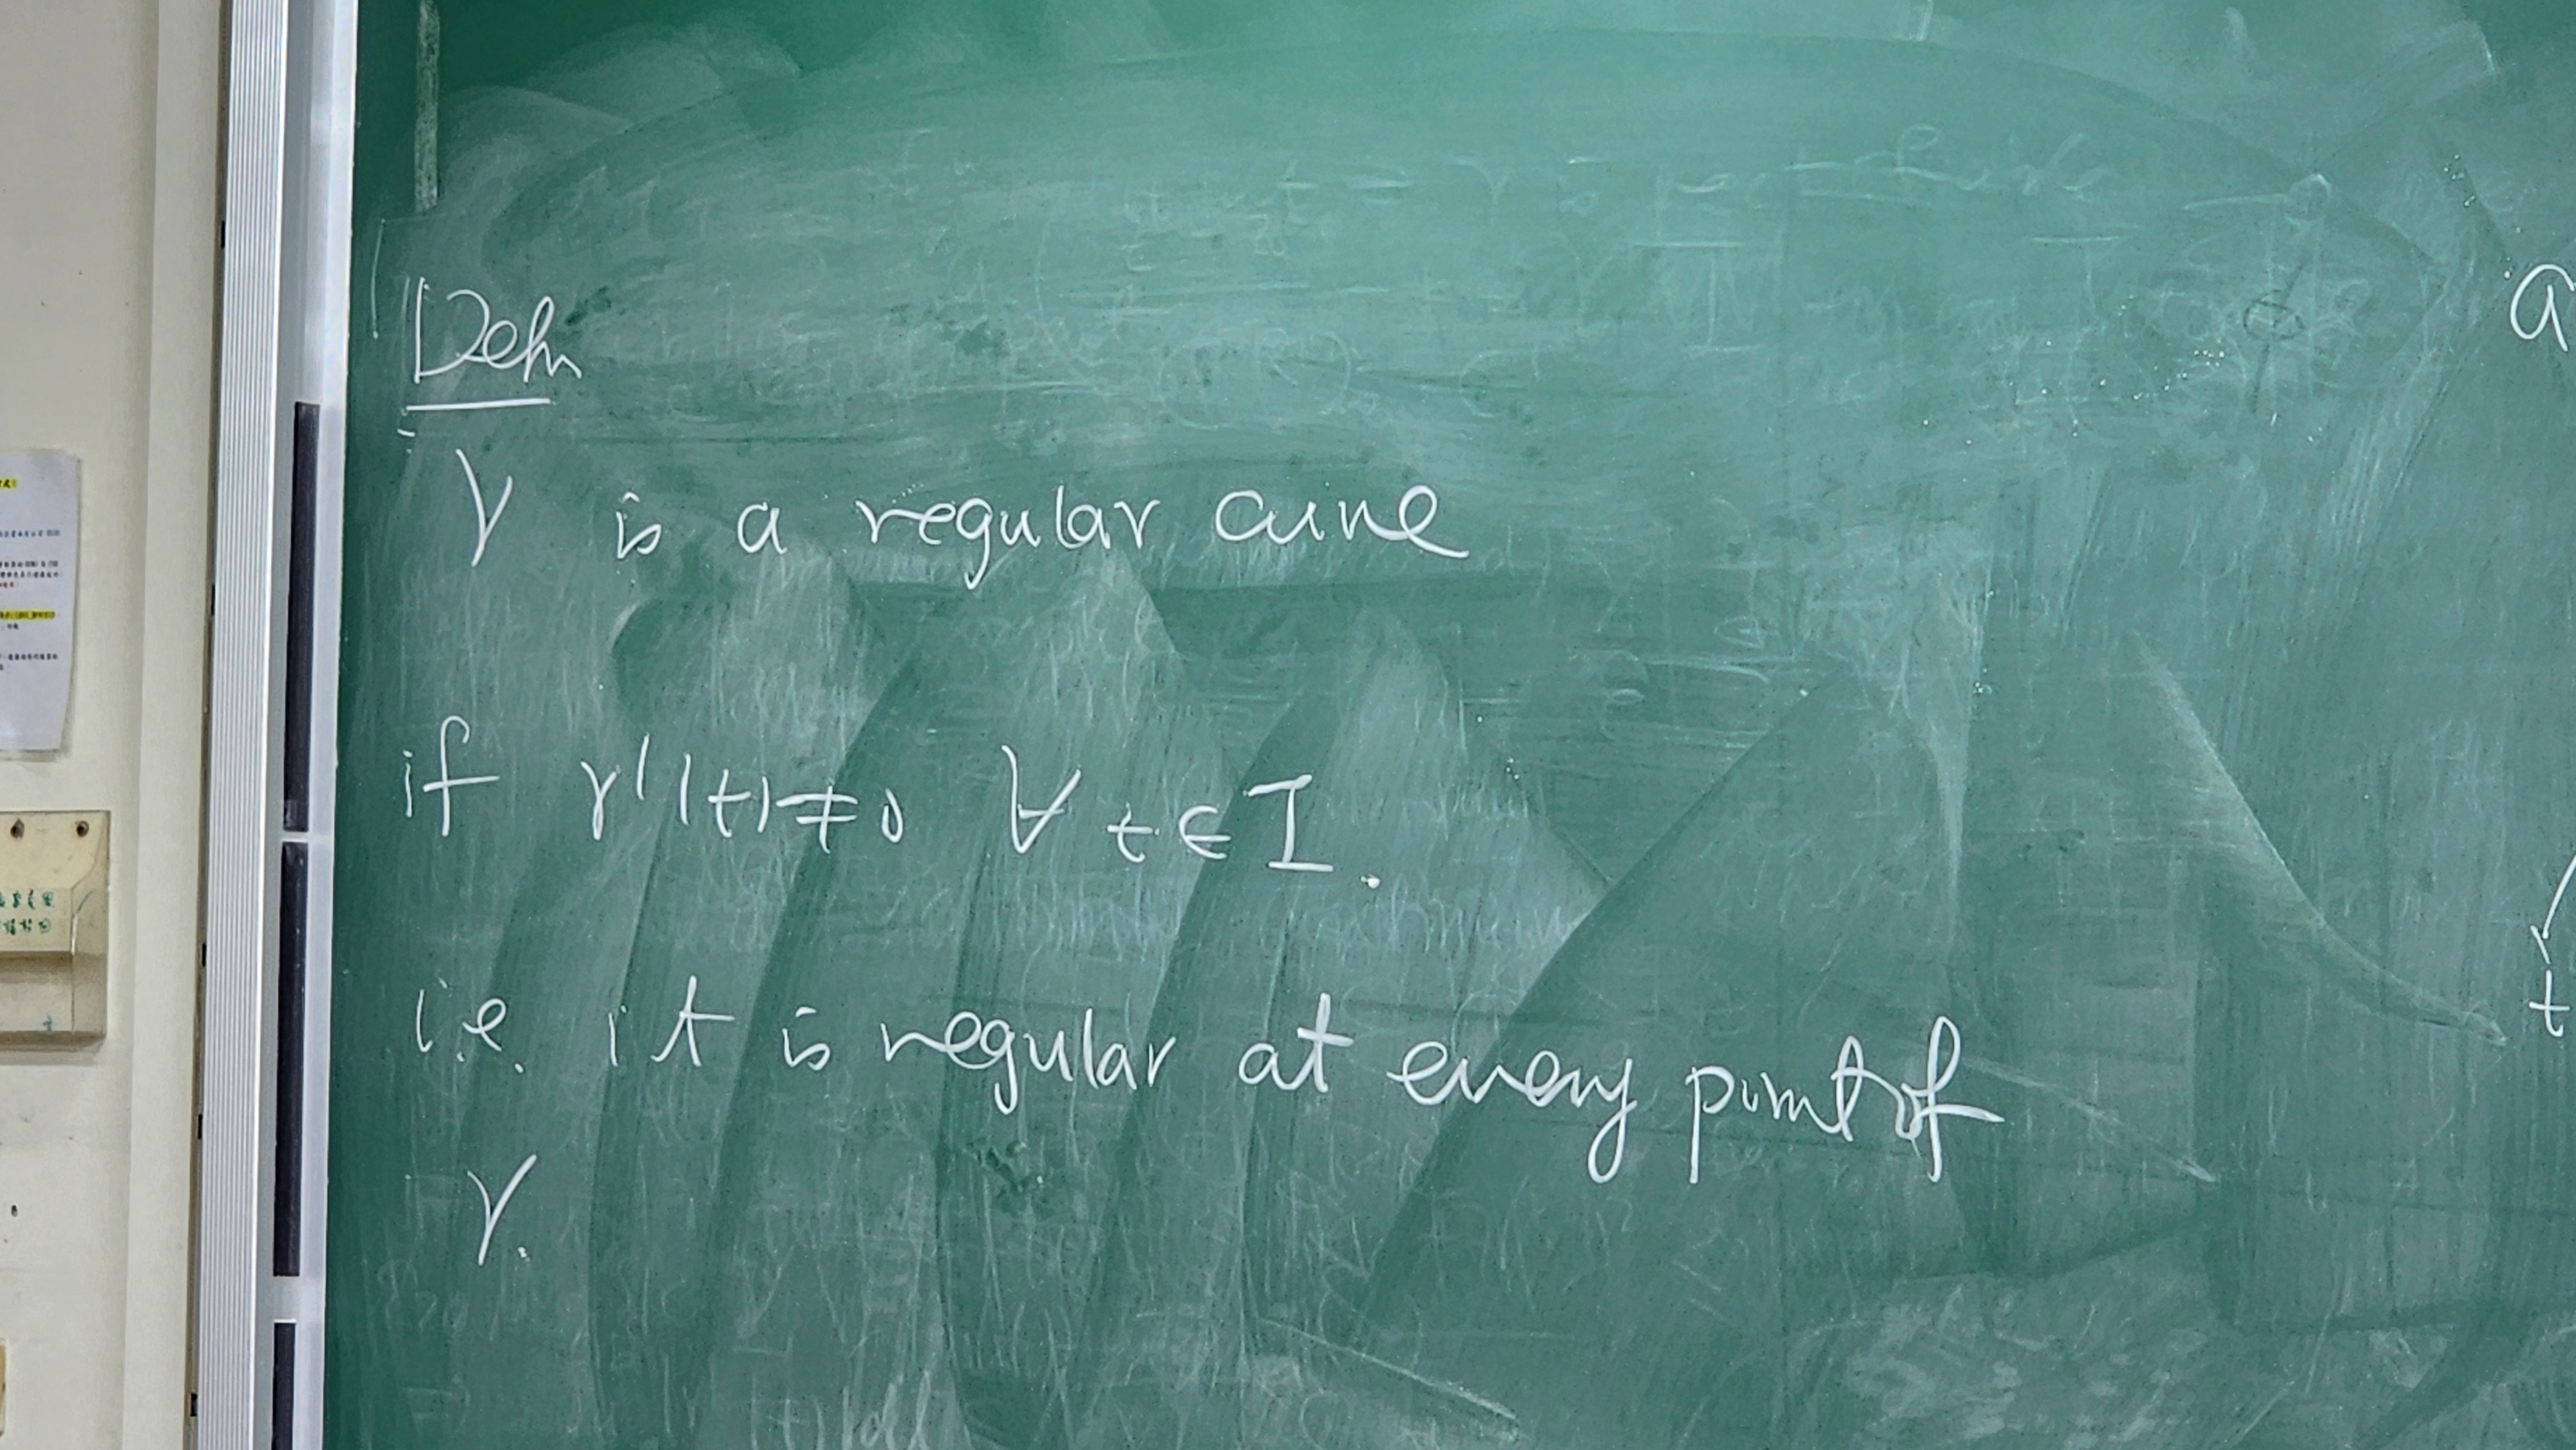 Defn
γ is a regular curve
if γ'(t)≠0 ∀ t∈I.
i.e. it is regular at every point of
γ.
a
t